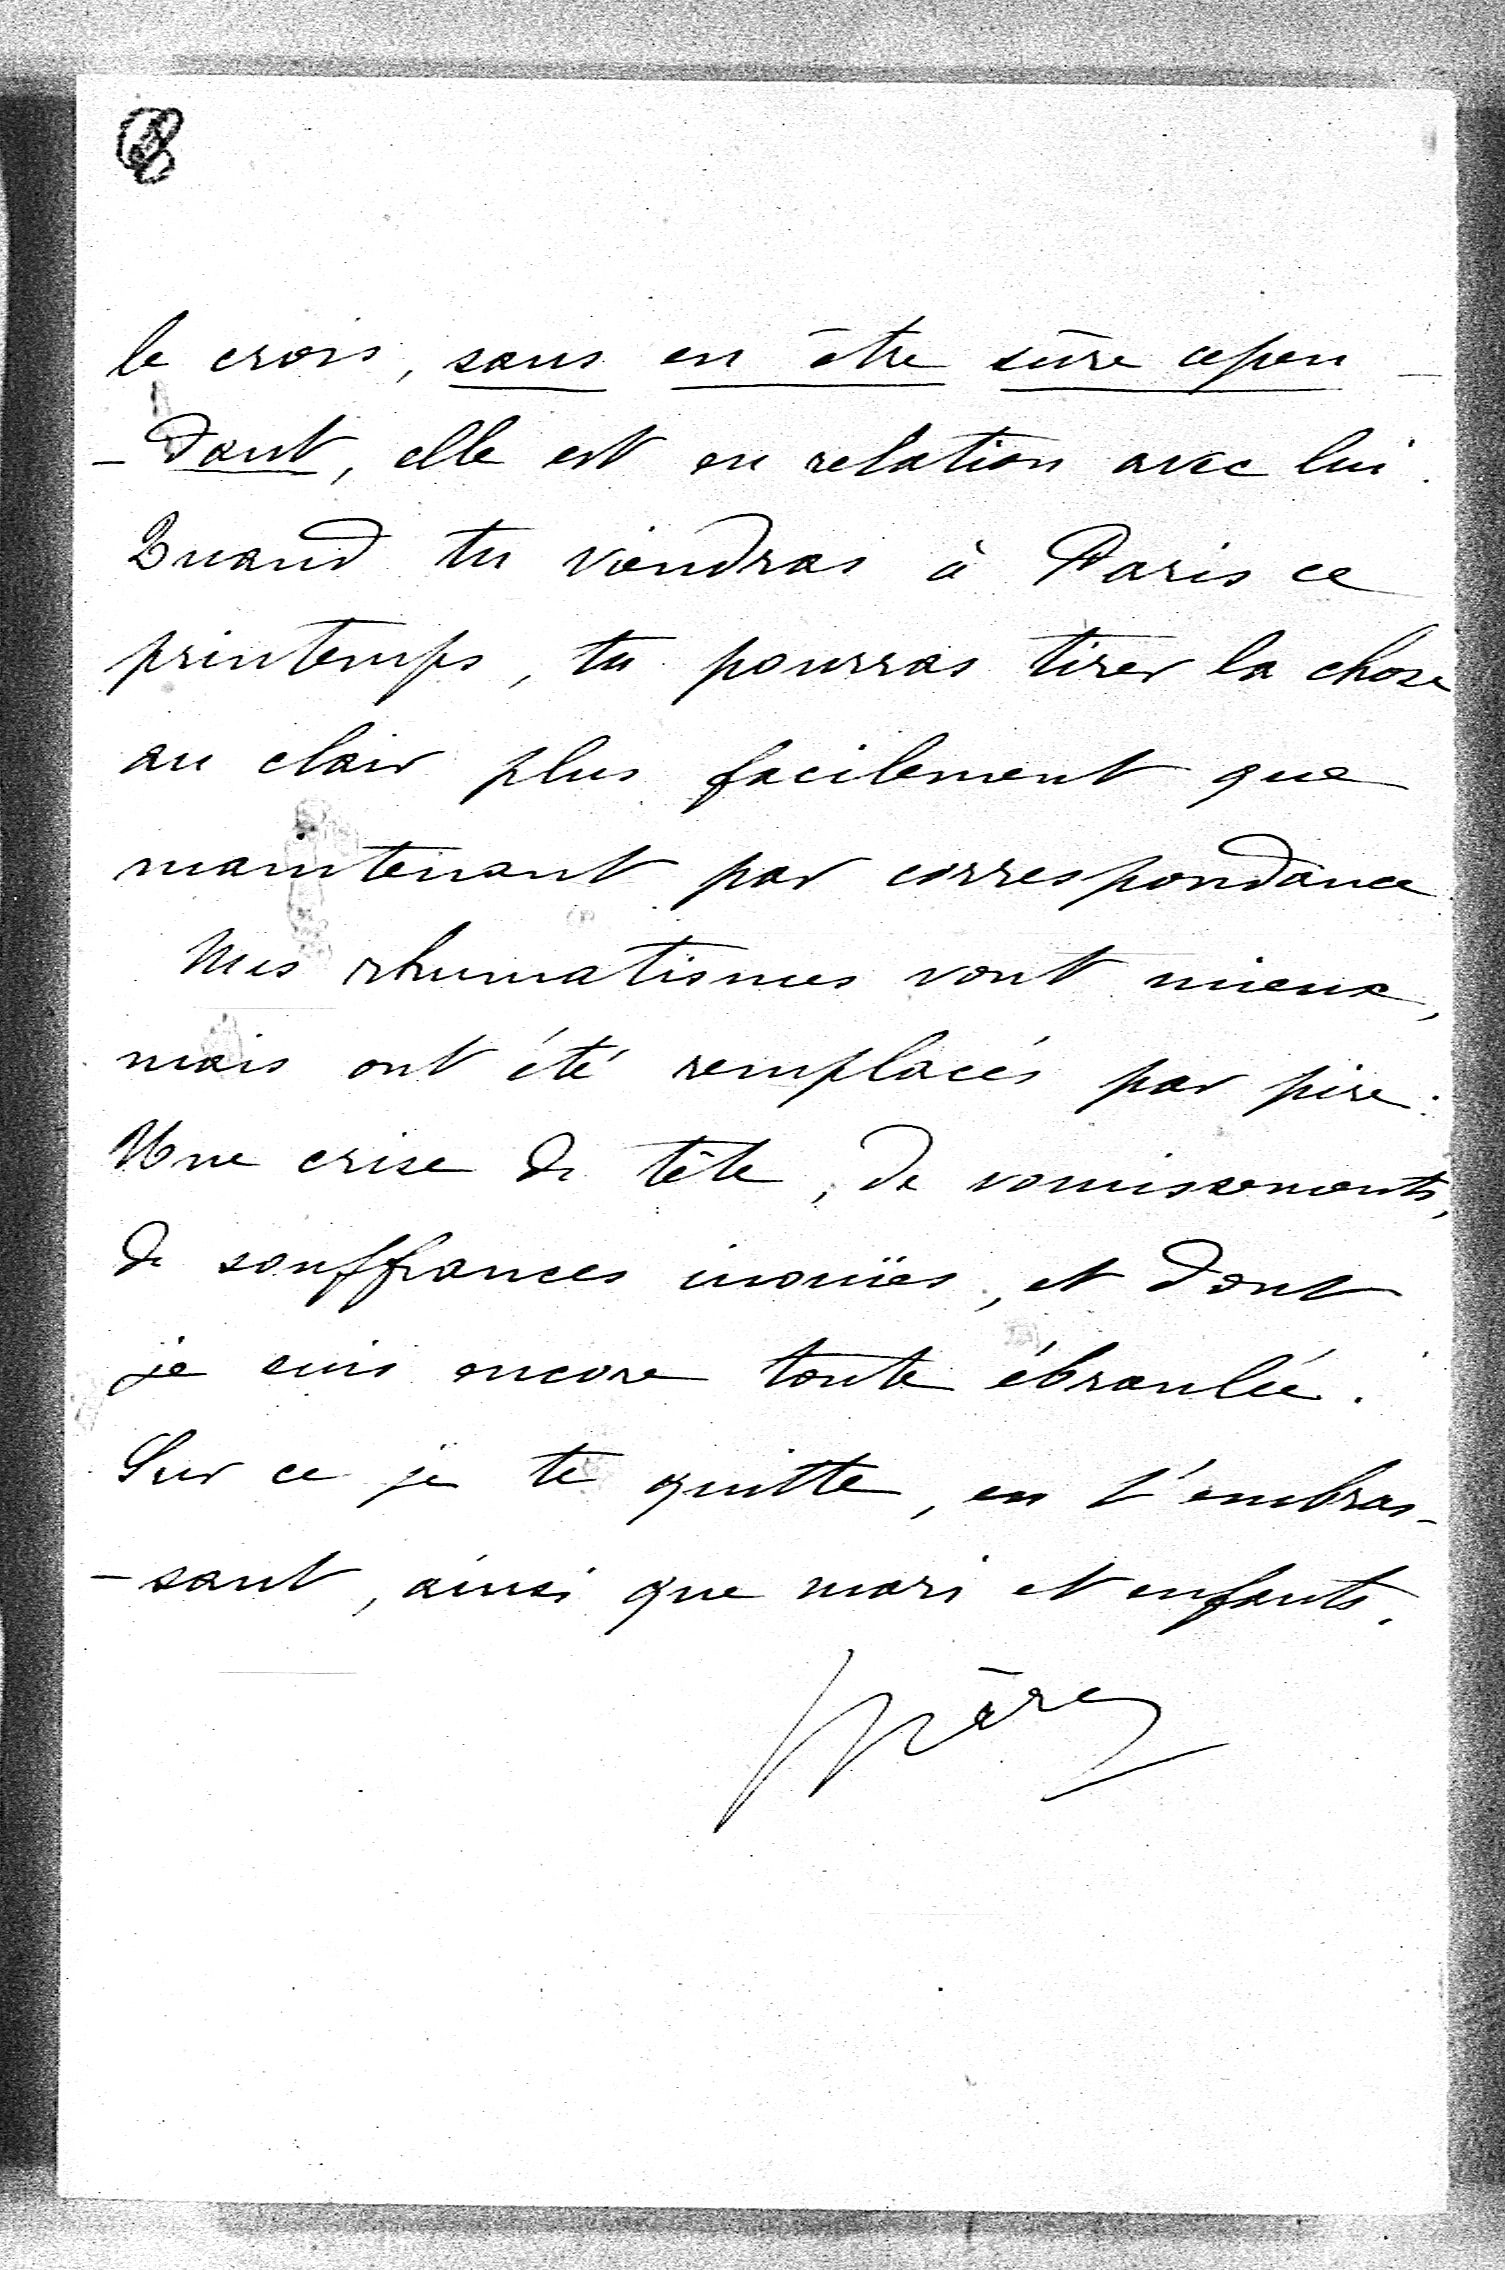 le crois, sans en être sûre cepen-
-dant, elle est en relation avec lui.
Quand tu viendras à Paris ce
printemps, tu pourras tirer la chose
au clair plus facilement que
maintenant par correspondance.
Mes rhumatismes vont mieux,
mais ont été remplacés par pire.
Une crise de tête, de vomissements,
de souffrances inouïes, et dont
je suis encore toute ébranlée.
Sur ce je te quitte, en t'embras-
-sant, ainsi que mari et enfants.
Mère